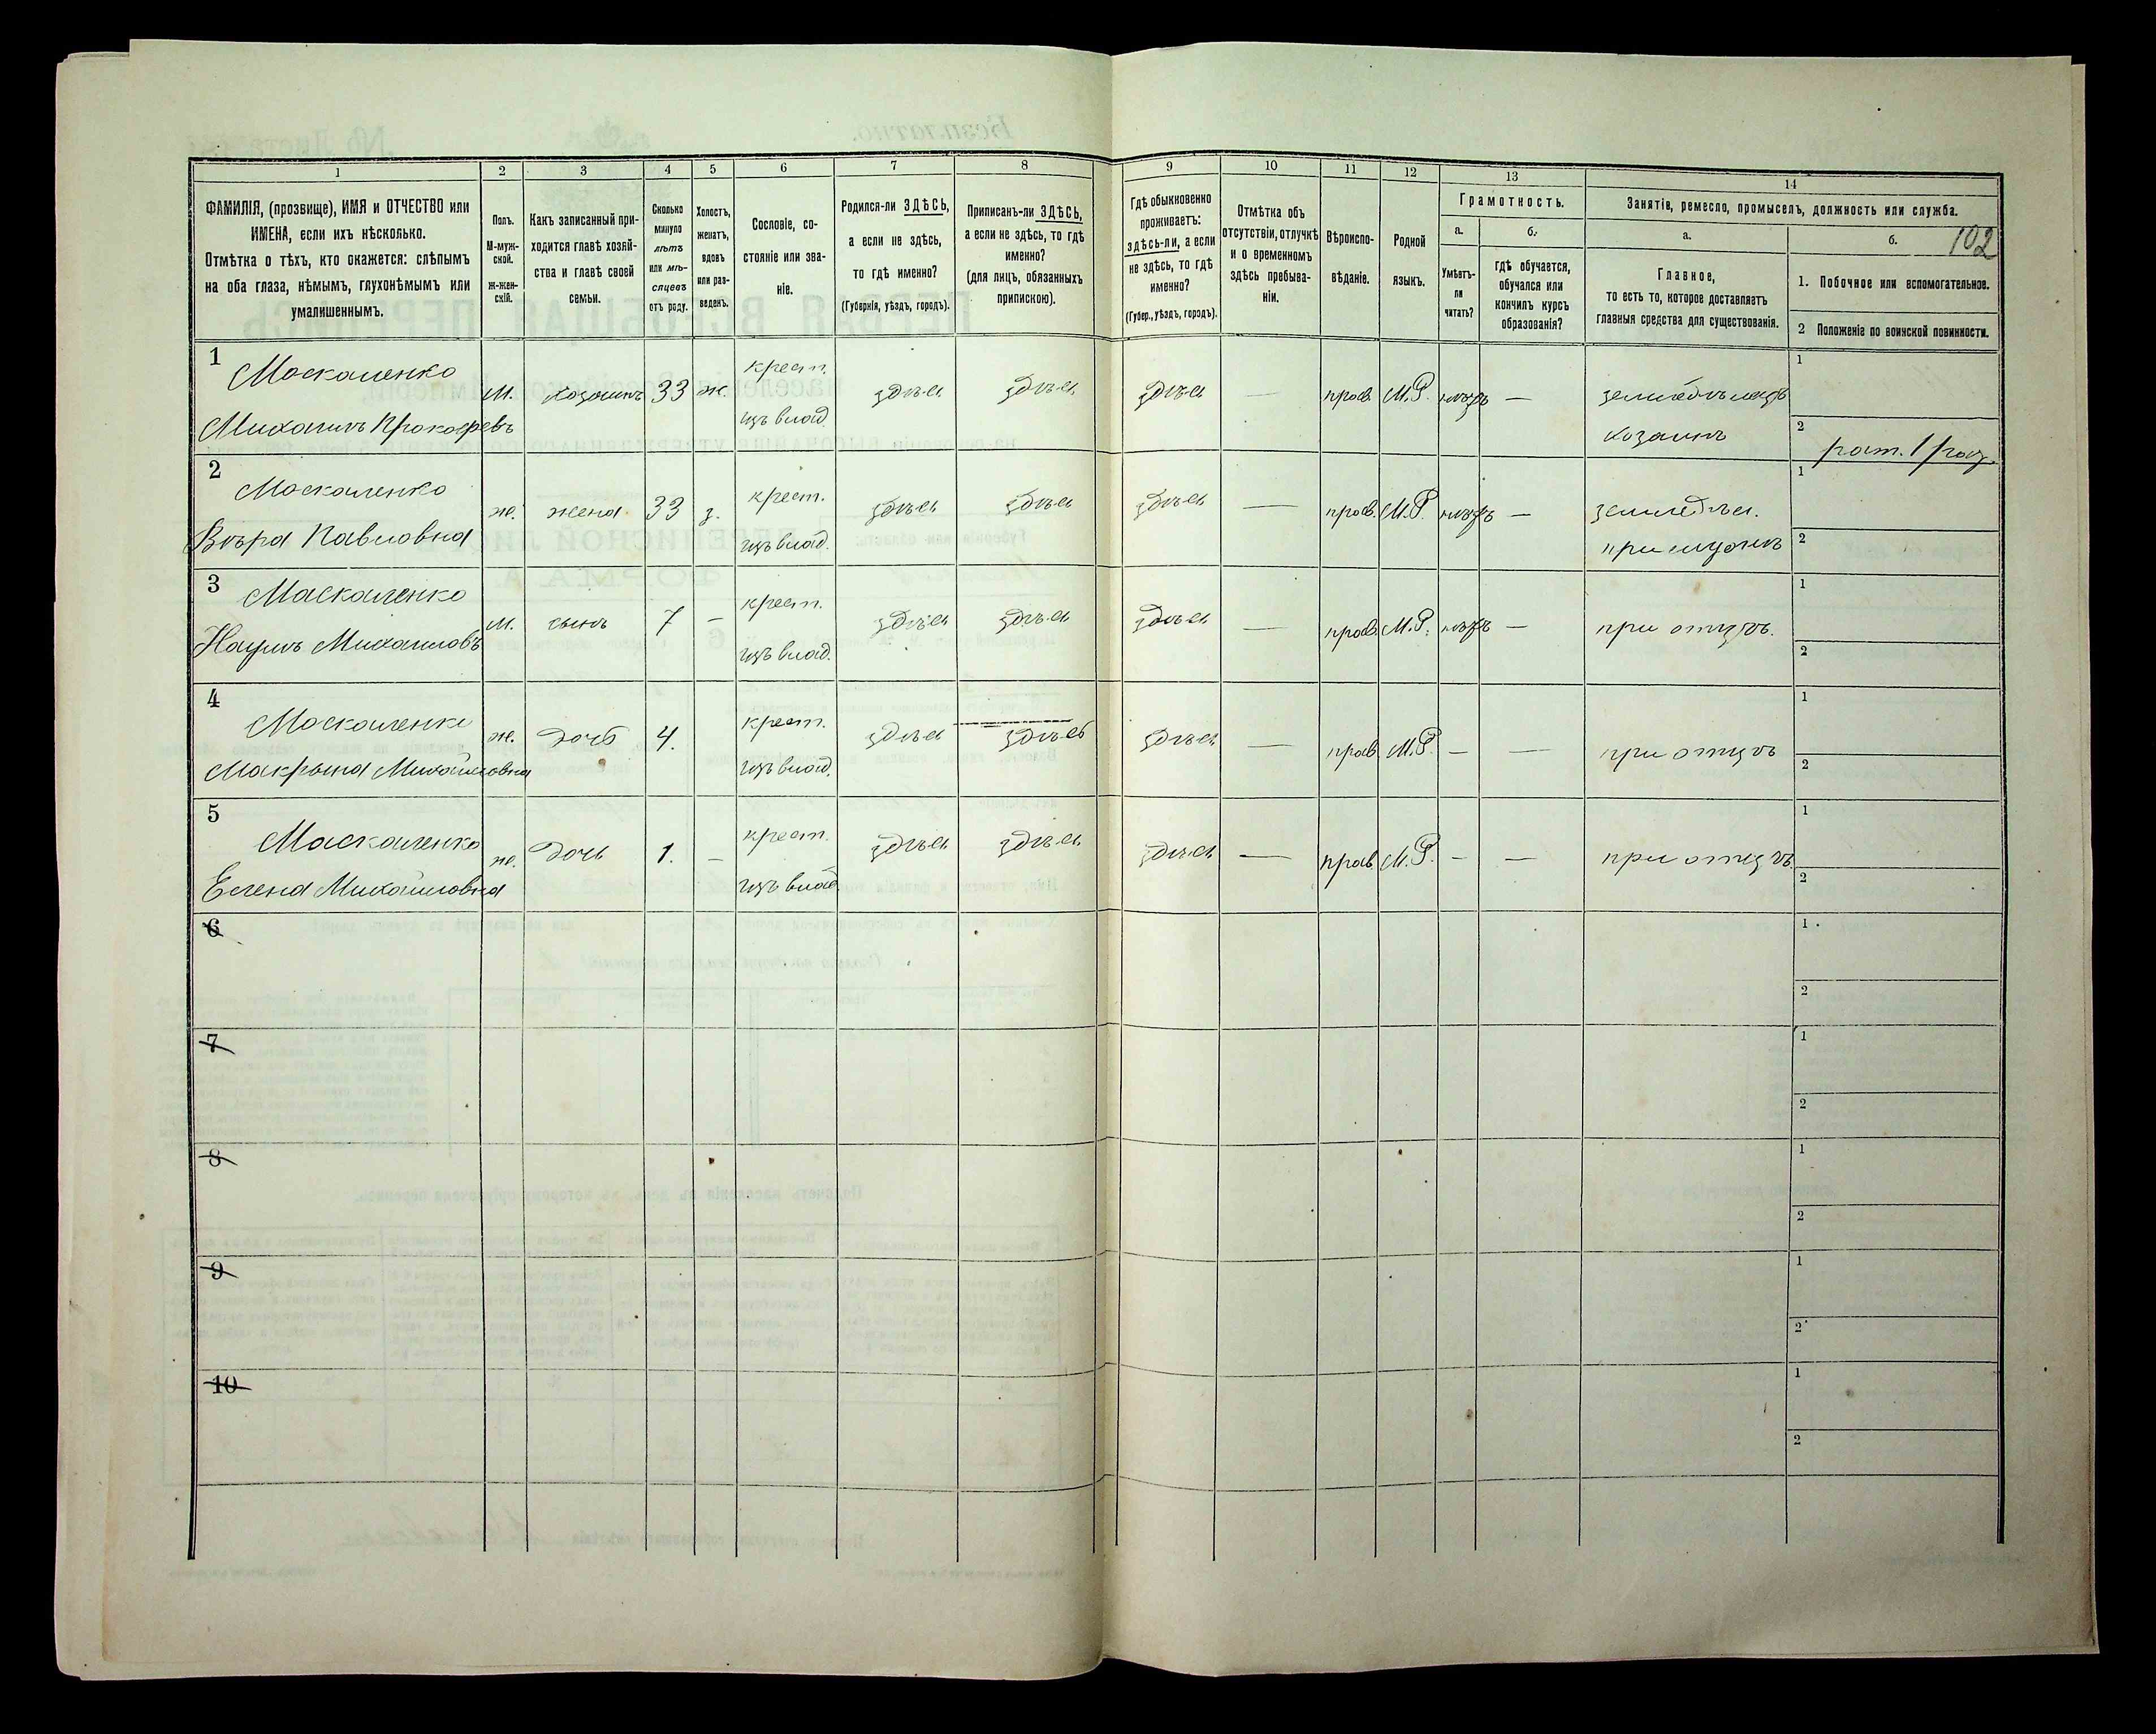 102
1
2
3
4
5
6
7
8
9
10
11
12
13
14
ФАМИЛІЯ, (прозвище), ИМЯ и ОТЧЕСТВО или
ИМЕНА, если ихъ нѣсколько.
Отмѣтка о тѣхъ, кто окажется: слѣпымъ
на оба глаза, нѣмымъ, глухонѣмымъ или
умалишеннымъ.
Полъ.
М-муж-
ской.
Ж-жен-
скій.
Какъ записанный при-
ходится главѣ хозяй-
ства и главѣ своей
семьи.
Сколько
минуло
лѣтъ
или мѣ-
сяцевъ
отъ роду.
Холостъ,
женатъ,
вдовъ
или раз-
веденъ.
Сословіе, со-
стояніе или зва-
ніе.
Родился-ли ЗДѢСЬ,
а если не здѣсь,
то гдѣ именно?
(Губернія, уѣздъ, городъ).
Приписанъ-ли ЗДѢСЬ,
а если не здѣсь, то гдѣ
именно?
(для лицъ, обязанныхъ
припискою).
Гдѣ обыкновенно
проживаетъ:
здѣсь-ли, а если
не здѣсь, то гдѣ
именно?
(Губер., уѣздъ, городъ).
Отмѣтка объ
отсутствіи, отлучкѣ
и о временномъ
здѣсь пребыва-
ніи.
Вѣроиспо-
вѣданіе.
Родной
языкъ.
Грамотность.
а.
Умѣетъ-
ли
читать?
б.
гдѣ обучается,
обучался или
кончилъ курсъ
образованія?
Занятіе, ремесло, промыселъ, должность или служба.
а.
Главное,
то есть то, которое доставляетъ
главныя средства для существованія.
б.
1. Побочное или вспомогательное.
2 Положеніе по воинской повинности.
1 Москаленко
Михаилъ Прокофьевъ
м. хозяинъ 33 ж. крест. изъ влад. здѣсь здѣсь здѣсь — прав. М.Р. нѣтъ — земледѣлецъ хозяинъ
1
2 рат. 1 раз.
2 Москаленко
Вѣра Павловна
ж. жена 33 з. крест. изъ влад. здѣсь здѣсь здѣсь — прав. М.Р. нѣтъ — земледѣл. при мужѣ
1
2
3 Москаленко
Наумъ Михаиловъ
м. сынъ 7 — крест. изъ влад. здѣсь здѣсь здѣсь — прав. М.Р. нѣтъ — при отцѣ.
1
2
4 Москаленко
Макрына Михайловна
ж. дочь 4. крест. изъ влад. здѣсь здѣсь здѣсь — прав. М.Р. — — при отцѣ
1
2
5 Москаленко
Елена Михайловна
ж. дочь 1. — крест. изъ влад. здѣсь здѣсь здѣсь — прав. М.Р. — — при отцѣ
1
2
6
1
2
7
1
2
8
1
2
9
1
2
10
1
2